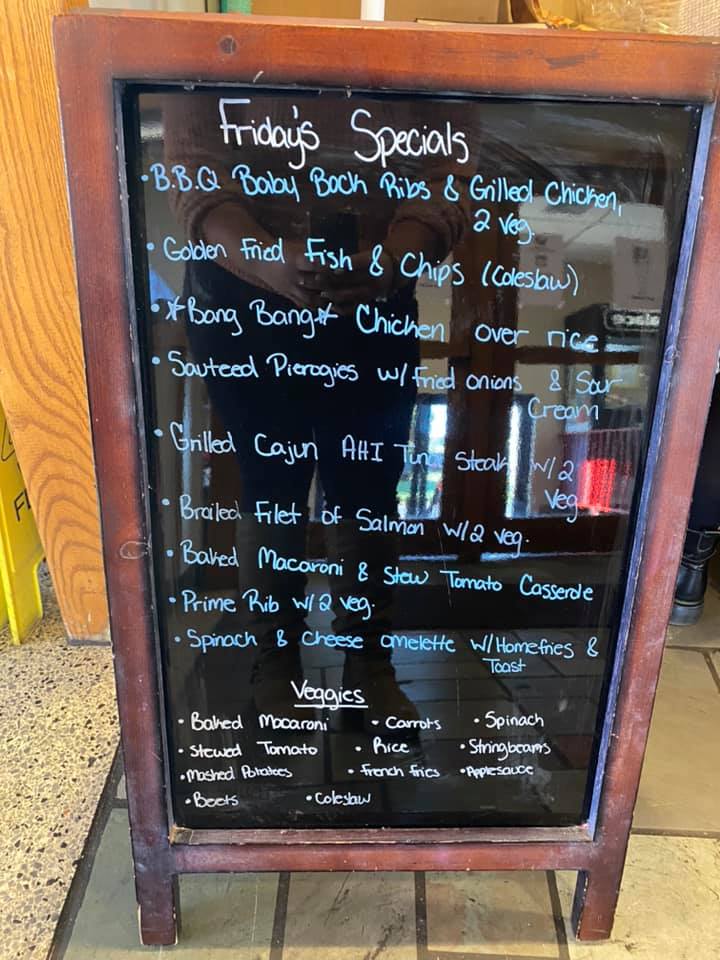 Friday's Specials
• B.B.Q Baby Back Ribs & Grilled Chicken,
2 Veg.
• Golden Fried Fish & Chips (Coleslaw)
• *Bang Bang* Chicken over rice
• Sauteed Pierogies w/ fried onions & Sour
Cream
• Grilled Cajun AHI Tuna Steak w/2
Veg
• Broiled Filet of Salmon w/2 veg.
• Baked Macaroni & Stew Tomato Casserole
• Prime Rib w/2 veg.
• Spinach & Cheese omelette w/Homefries &
Toast
Veggies
• Baked Macaroni • Carrots • Spinach
• Stewed Tomato • Rice • Stringbeans
• Mashed Potatoes • French fries • Applesauce
• Beets • Coleslaw